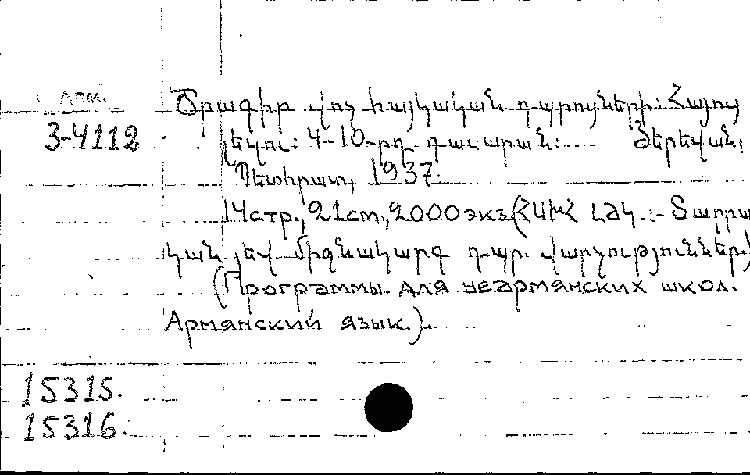 Ծրագիր վոչ հայկական դպրոցների: Հայոց
3-4112 լեզու: 4-10-րդ դասարան: Յերեվան,
Պետհրատ, 1937.
14стр., 21см, 2000экз (ՀՍԽՀ ԼԺԿ.- Տարրա
կան յեվ միջնակարգ դպր. վարչություններ)
(Программы для неармянских школ.
Армянский язык.).
15315.
15316.